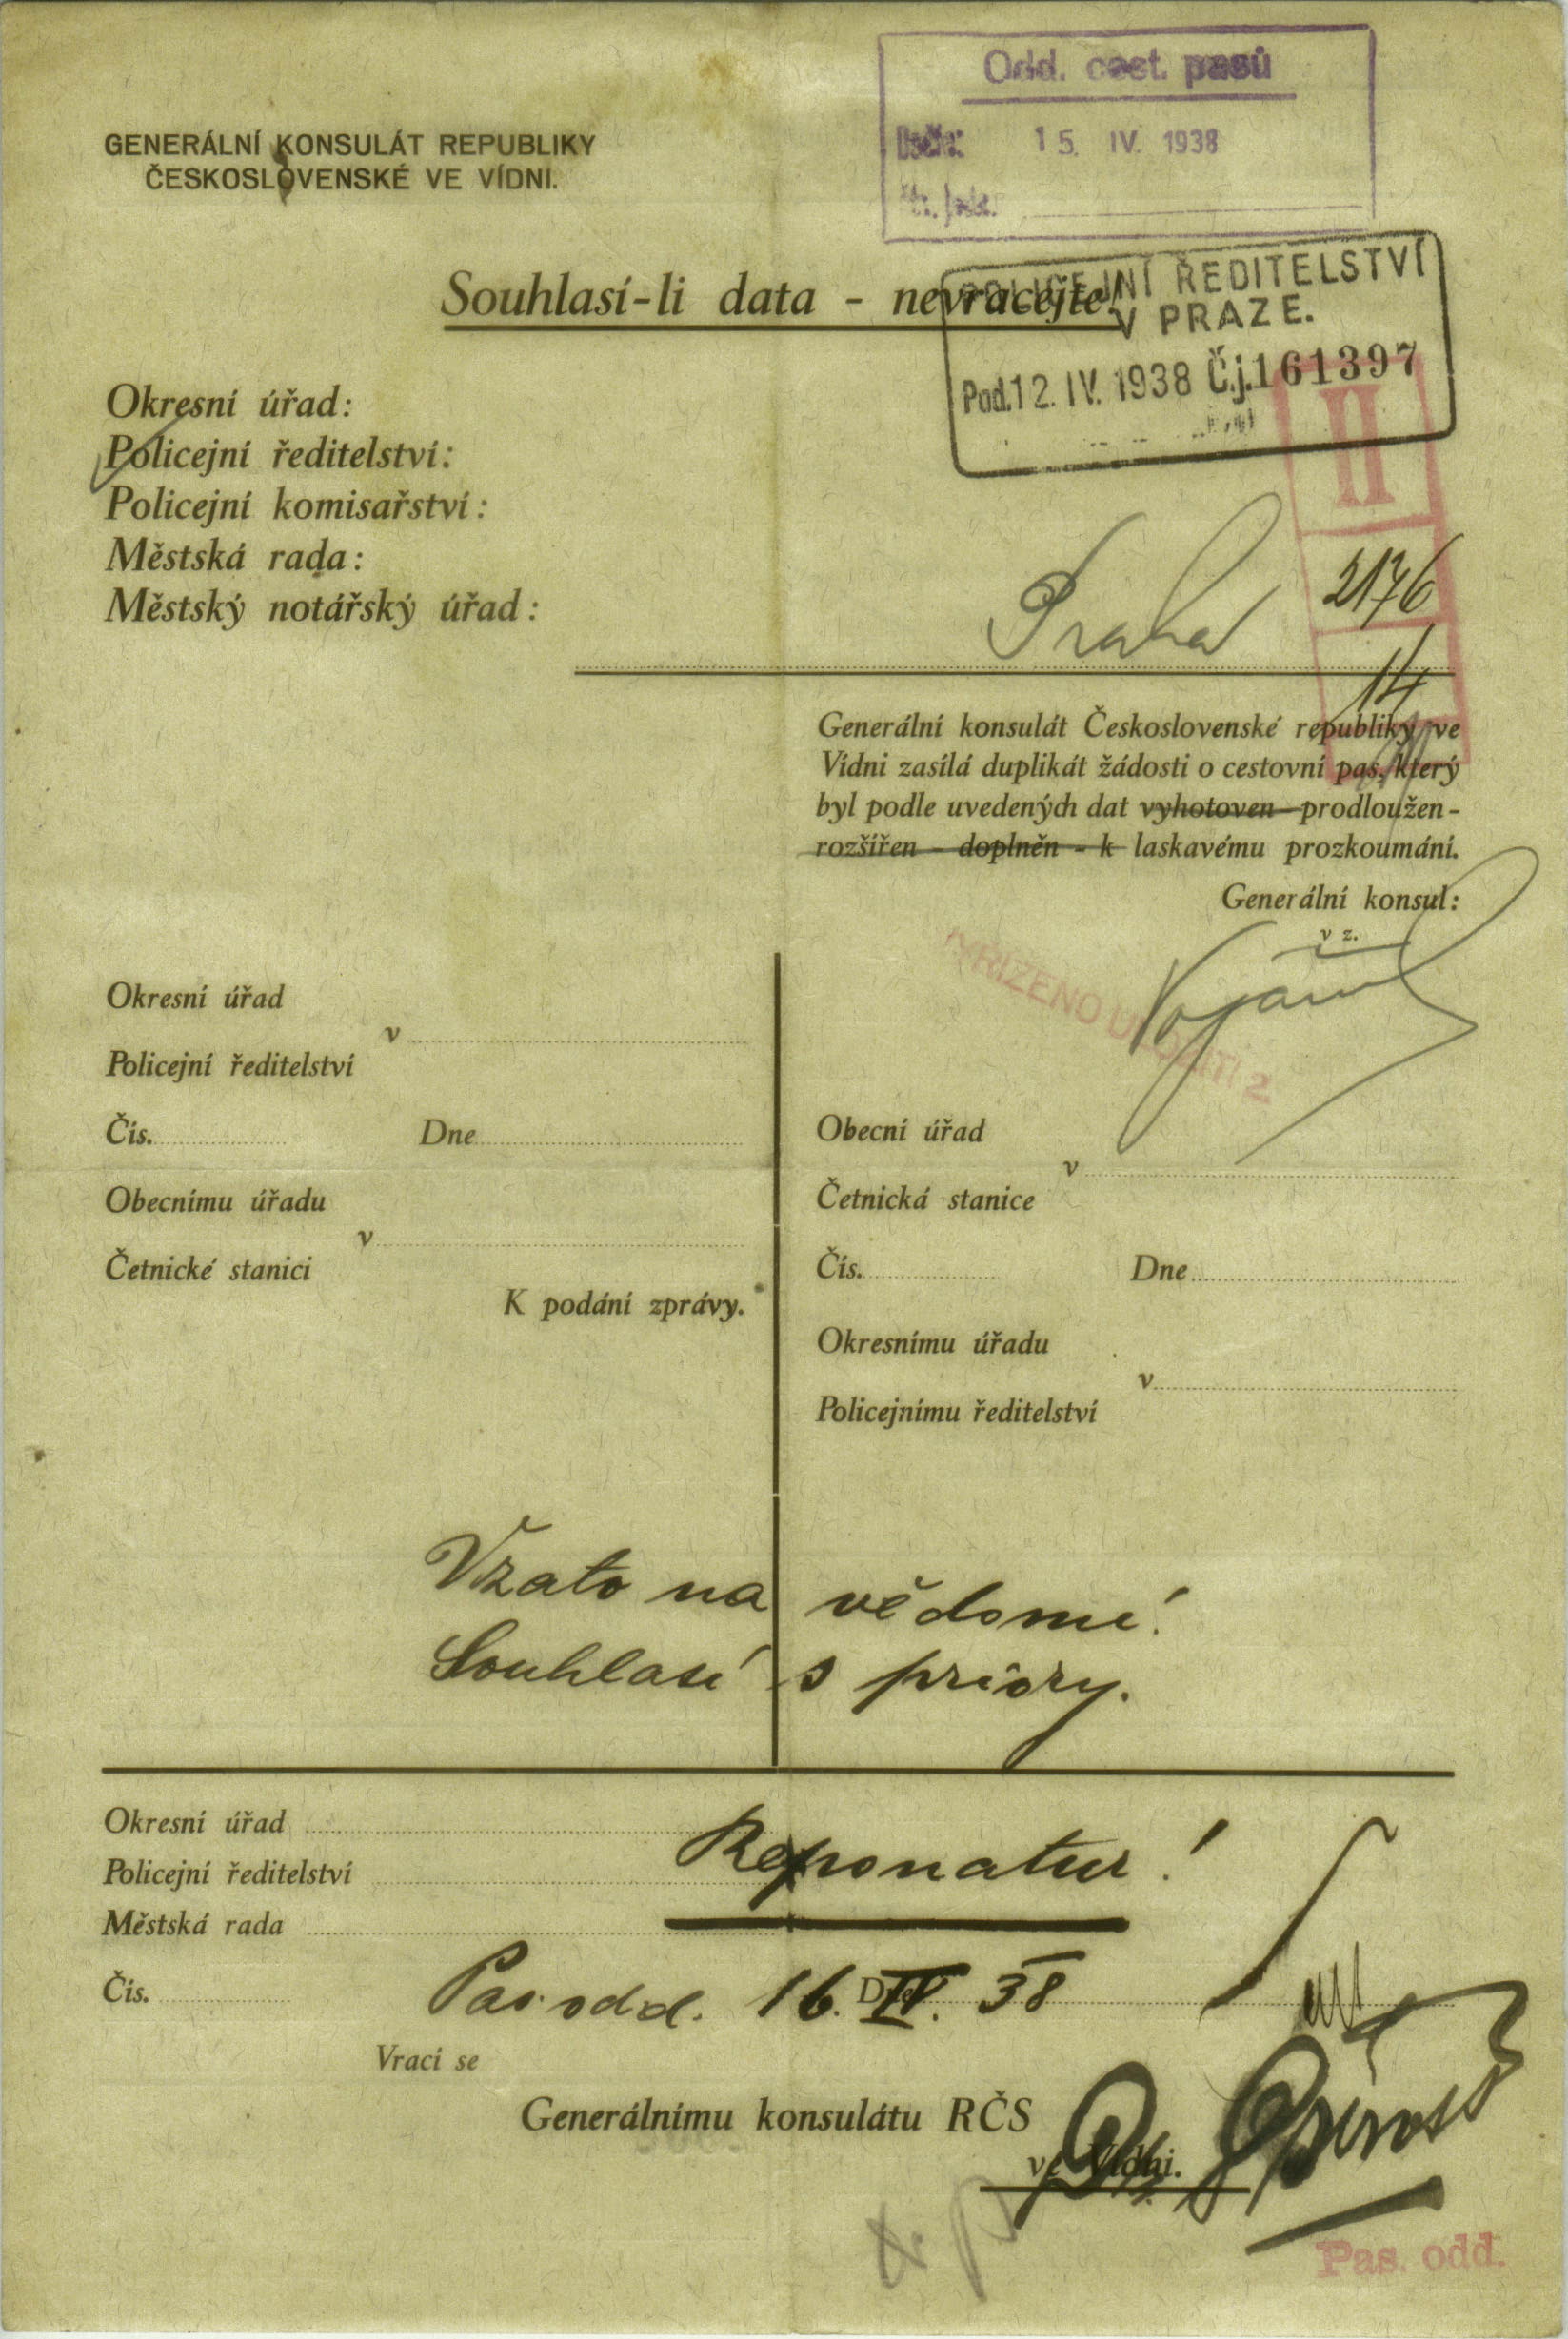 Odd. cest. pasů
Došlo: 15. IV. 1938
GENERÁLNÍ KONSULÁT REPUBLIKY
ČESKOSLOVENSKÉ VE VÍDNI.
Souhlasí-li data - nevracejte!
POLICEJNÍ ŘEDITELSTVÍ
V PRAZE.
Pod. 12. IV. 1938 Č.j. 161397
II
Okresní úřad:
Policejní ředitelství:
Policejní komisařství:
Městská rada:
Městský notářský úřad:
Praha
2176
14
Generální konsulát Československé republiky ve
Vídni zasílá duplikát žádosti o cestovní pas, který
byl podle uvedených dat vyhotoven - prodloužen -
rozšířen - doplněn - k laskavému prozkoumání.
Generální konsul:
v z.
Okresní úřad
v
Policejní ředitelství
Čís. Dne
Obecnímu úřadu
v
Četnické stanici
K podání zprávy.
Obecní úřad
v
Četnická stanice
Čís. Dne
Okresnímu úřadu
v
Policejnímu ředitelství
Vzato na vědomí!
Souhlasí s priory.
Okresní úřad
Policejní ředitelství
Městská rada
Reponatur!
Čís. Pas. odd. 16. IV. 38
Vrací se
Generálnímu konsulátu RČS
ve Vídni.
Pas. odd.